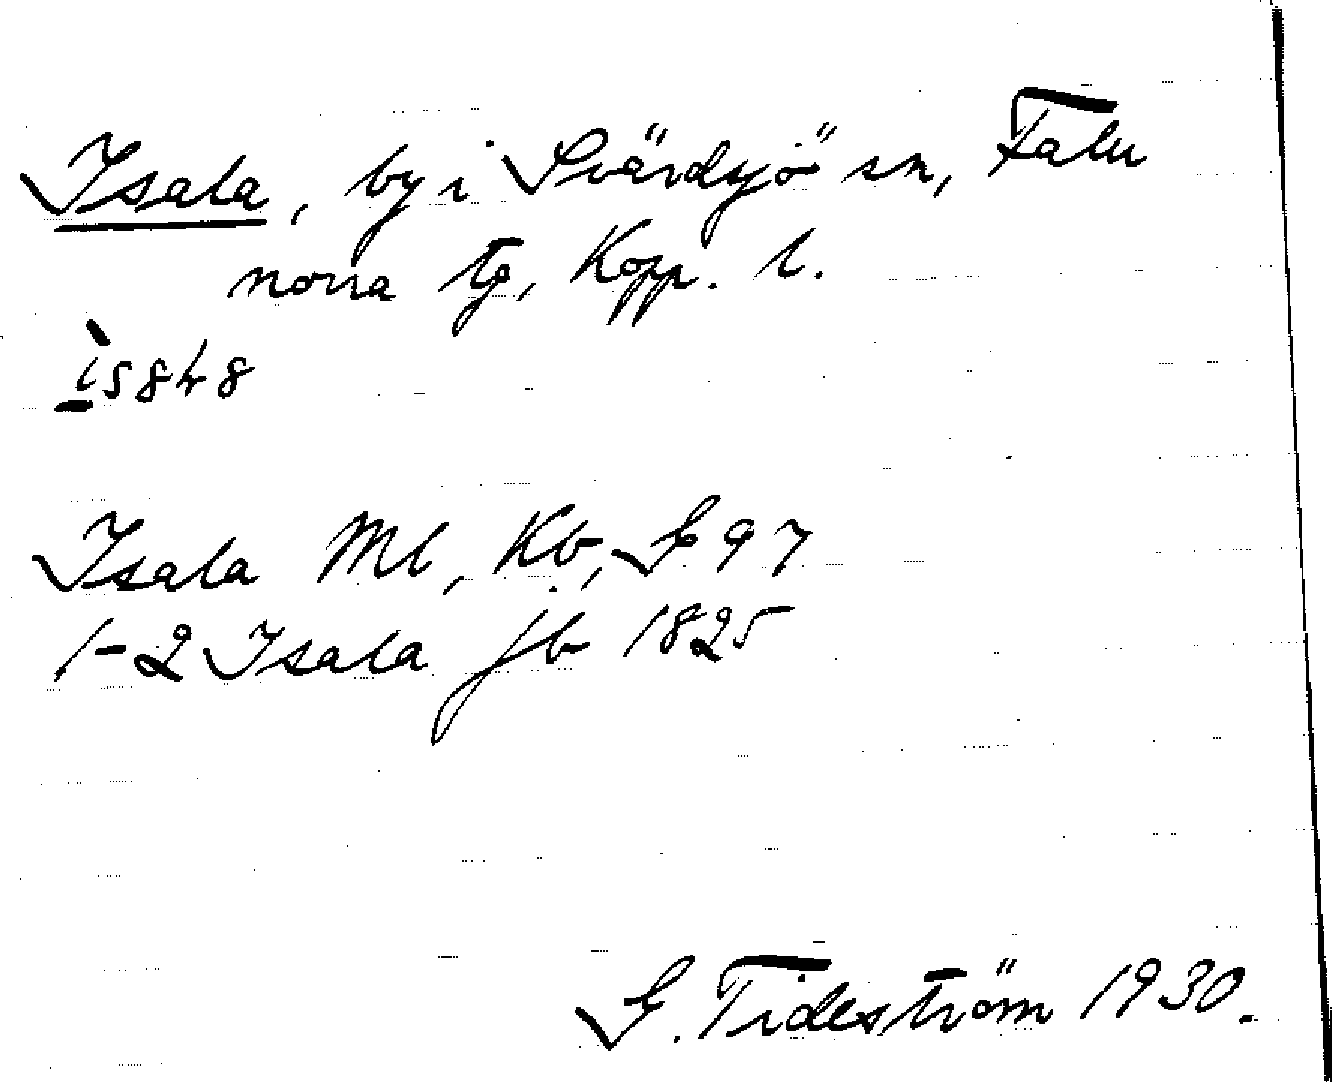 Isala, by i Svärdsjö sn, Falu
norra tg, Kopp. l.
Isala Ml, Kb, G 97
1-2 Isala jb 1825
G. Tideström 1930.